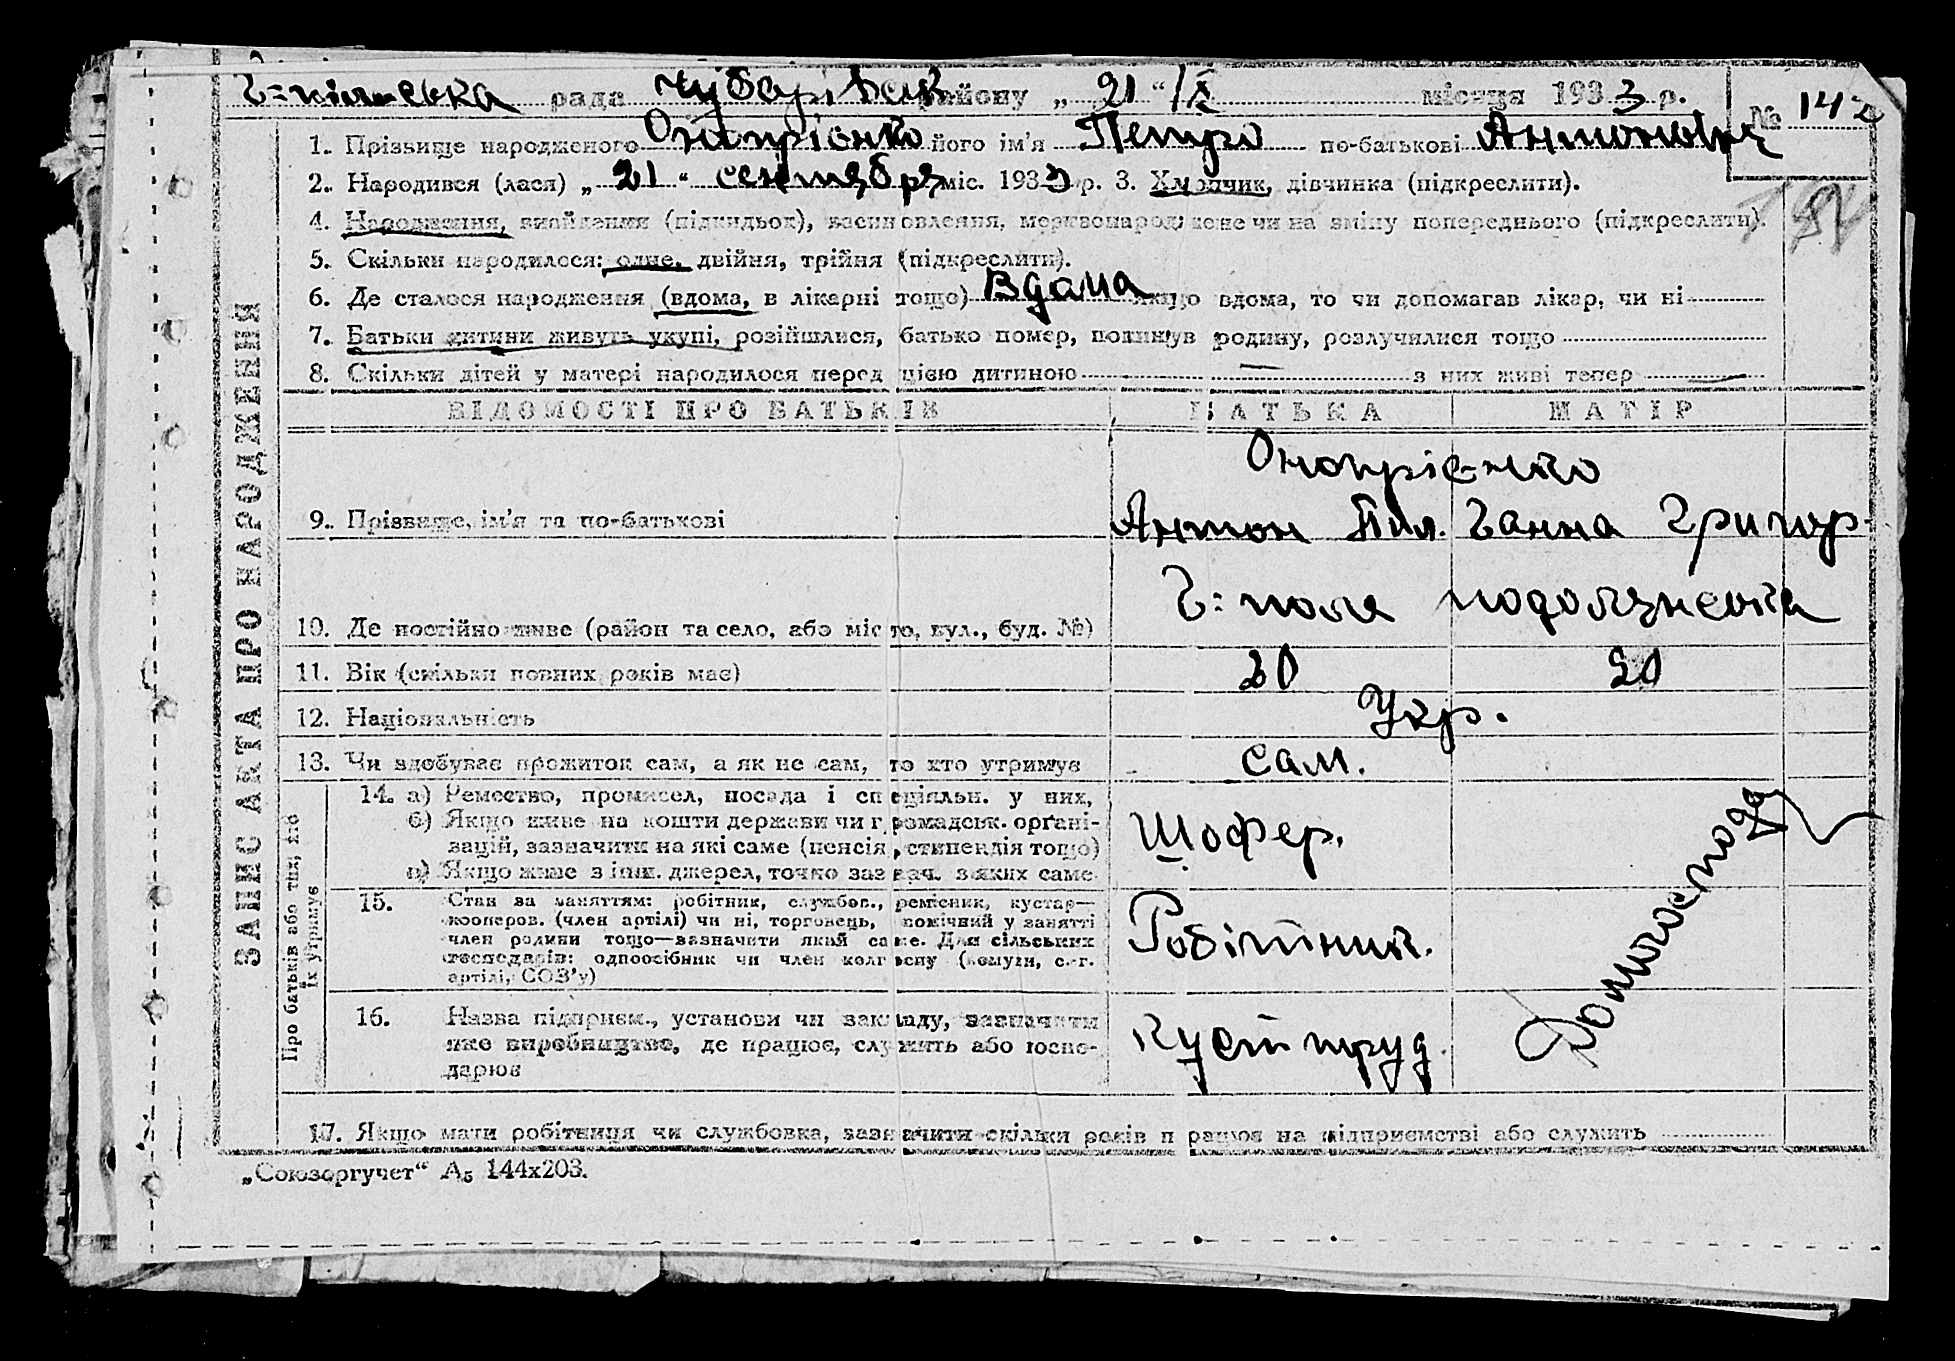 Г=пільська рада Чубарівськ району „ 21 “ /X місяця 1933 р.
№ 142
1. Прізвище народженого Онопрієнко його ім'я Петро по-батькові Антонович
2. Народився (лася) „ 21 “ сентября міс. 1933 р. 3. Хлопчик, дівчинка (підкреслити).
4. Народження, знайдення (підкидьок), засиновлення, мертвонароджене чи на зміну попереднього (підкреслити).
5. Скільки народилося: одне, двійня, трійня (підкреслити).
6. Де сталося народження (вдома, в лікарні тощо) Вдома якщо вдома, то чи допомагав лікар, чи ні
7. Батьки дитини живуть укупі, розійшлися, батько помер, покинув родину, розлучилися тощо
8. Скільки дітей у матері народилося перед цією дитиною — з них живі тепер —
ЗАПИС АКТА ПРО НАРОДЖЕННЯ
ВІДОМОСТІ ПРО БАТЬКІВ БАТЬКА МАТІР
Онопрієнко
9. Прізвище, ім'я та по-батькові Антон Пил. Ганна Григор.
Г=поле подолянська
10. Де постійно живе (район та село, або місто, вул., буд. №)
11. Вік (скільки повних років має) 20 20
12. Національність Укр.
13. Чи здобуває прожиток сам, а як не сам, то хто утримує сам.
Про батьків або тих, хто їх утримує
14. а) Ремество, промисел, посада і спеціяльн. у них,
б) Якщо живе на кошти держави чи громадськ. організацій, зазначити на які саме (пенсія, стипендія тощо)
в) Якщо живе з інш. джерел, точно зазнач. з яких саме
Шофер.
Домогоспода
15. Стан за заняттям: робітник, службов., ремісник, кустар—
кооперов. (член артілі) чи ні, торговець, помічний у занятті
член родини тощо—зазначити який саме. Для сільських
господарів: одноосібник чи член колгоспу (комуни, с.-г.
артілі, СОЗ'у)
Робітник.
16. Назва підприєм., установи чи закладу, зазначити
яке виробництво, де працює, служить або госпо-
дарює
Кустпруд.
17. Якщо мати робітниця чи службовка, зазначити скільки років працює на підприємстві або служить
„Союзоргучет“ А₅ 144х203.